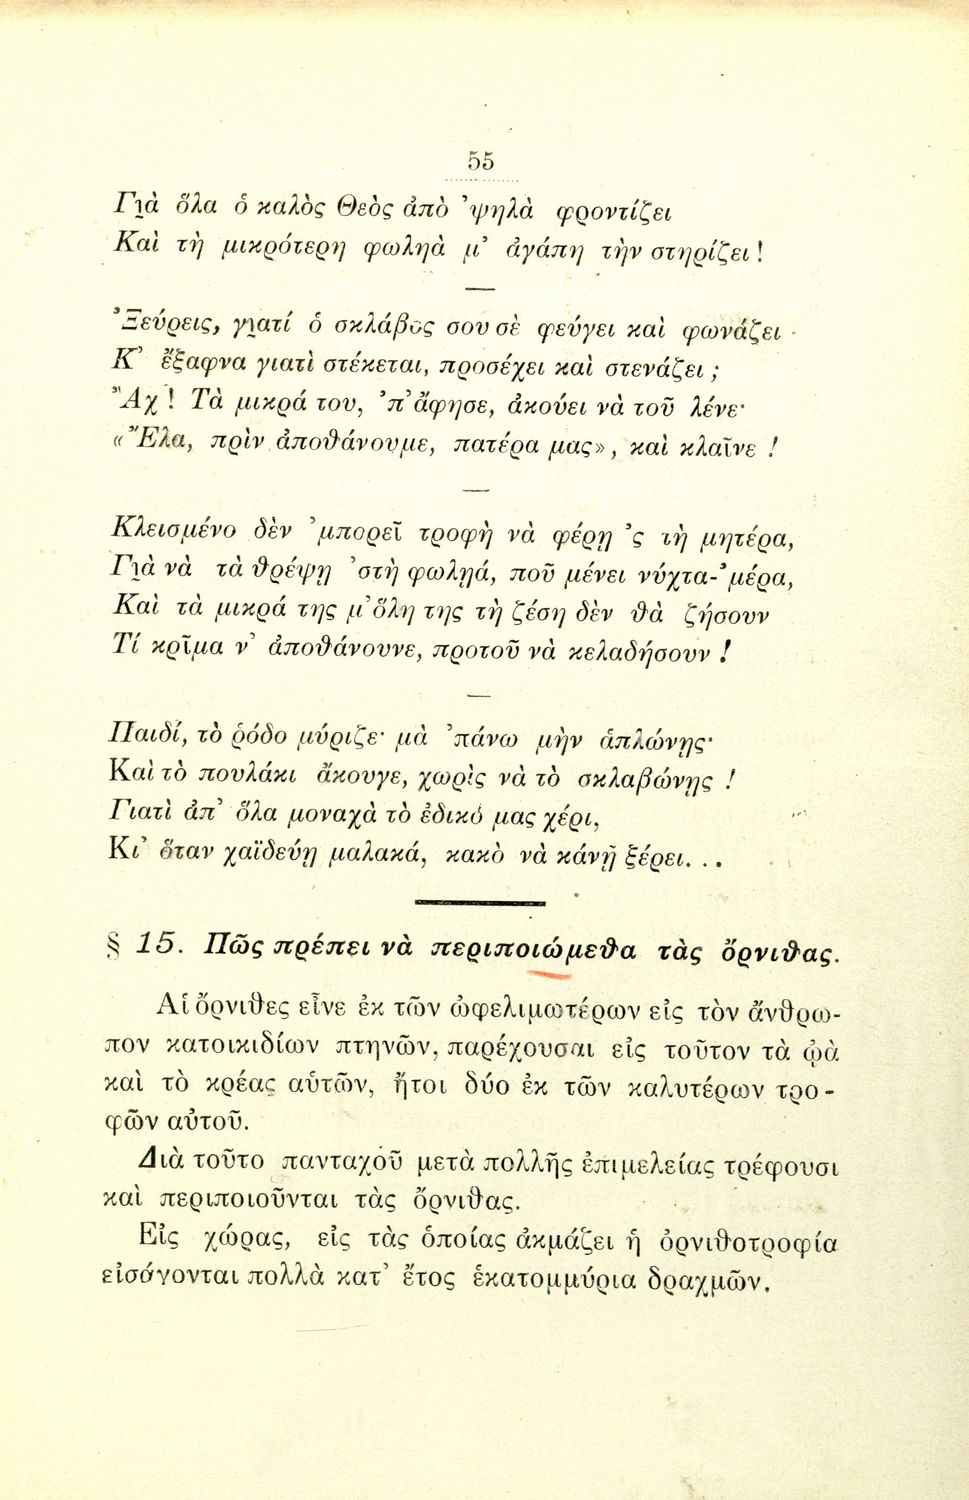 55
Γι̯ὰ ὅλα ὁ καλὸς Θεὸς ἀπὸ ’ψηλὰ φροντίζει
Καὶ τὴ μικρότερη φωληὰ μ’ ἀγάπη τὴν στηρίζει !
Ἠξεύρεις, γι̯ατί ὁ σκλάβος σου σὲ φεύγει καὶ φωνάζει
Κ’ ἔξαφνα γιατὶ στέκεται, προσέχει καὶ στενάζει ;
Ἂχ ! Τὰ μικρά του, ’π’ ἄφησε, ἀκούει νὰ τοῦ λένε·
« Ἔλα, πρὶν ἀποθάνουμε, πατέρα μας», καὶ κλαῖνε !
Κλεισμένο δὲν ’μπορεῖ τροφὴ νὰ φέρῃ ’ς τὴ μητέρα,
Γι̯ὰ νὰ τὰ θρέψῃ ’στὴ φωλῃά, ποῦ μένει νύχτα-’μέρα,
Καὶ τὰ μικρά της μ’ ὅλη της τὴ ζέση δὲν θὰ ζήσουν
Τί κρῖμα ν’ ἀποθάνουνε, προτοῦ νὰ κελαδήσουν !
Παιδί, τὸ ῥόδο μύριζε· μὰ ’πάνω μὴν ἁπλώνῃς·
Καὶ τὸ πουλάκι ἄκουγε, χωρὶς νὰ τὸ σκλαβώνῃς !
Γιατὶ ἀπ’ ὅλα μοναχὰ τὸ ἐδικό μας χέρι,
Κι’ ὅταν χαϊδεύῃ μαλακά, κακὸ νὰ κάνῃ ξέρει. . .
§ 15. Πῶς πρέπει νὰ περιποιώμεθα τὰς ὄρνιθας.
Αἱ ὄρνιθες εἶνε ἐκ τῶν ὠφελιμωτέρων εἰς τὸν ἄνθρω-
πον κατοικιδίων πτηνῶν, παρέχουσαι εἰς τοῦτον τὰ ᾠὰ
καὶ τὸ κρέας αὑτῶν, ἤτοι δύο ἐκ τῶν καλυτέρων τρο-
φῶν αὐτοῦ.
Διὰ τοῦτο πανταχοῦ μετὰ πολλῆς ἐπιμελείας τρέφουσι
καὶ περιποιοῦνται τὰς ὄρνιθας.
Εἰς χώρας, εἰς τὰς ὁποίας ἀκμάζει ἡ ὀρνιθοτροφία
εἰσάγονται πολλὰ κατ’ ἔτος ἑκατομμύρια δραχμῶν.